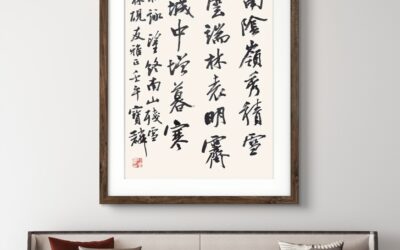 南陰嶺秀積雪
雲端林表明霽
城中增暮寒
詠望終南山殘雪
硯友雅正壬午寶麟